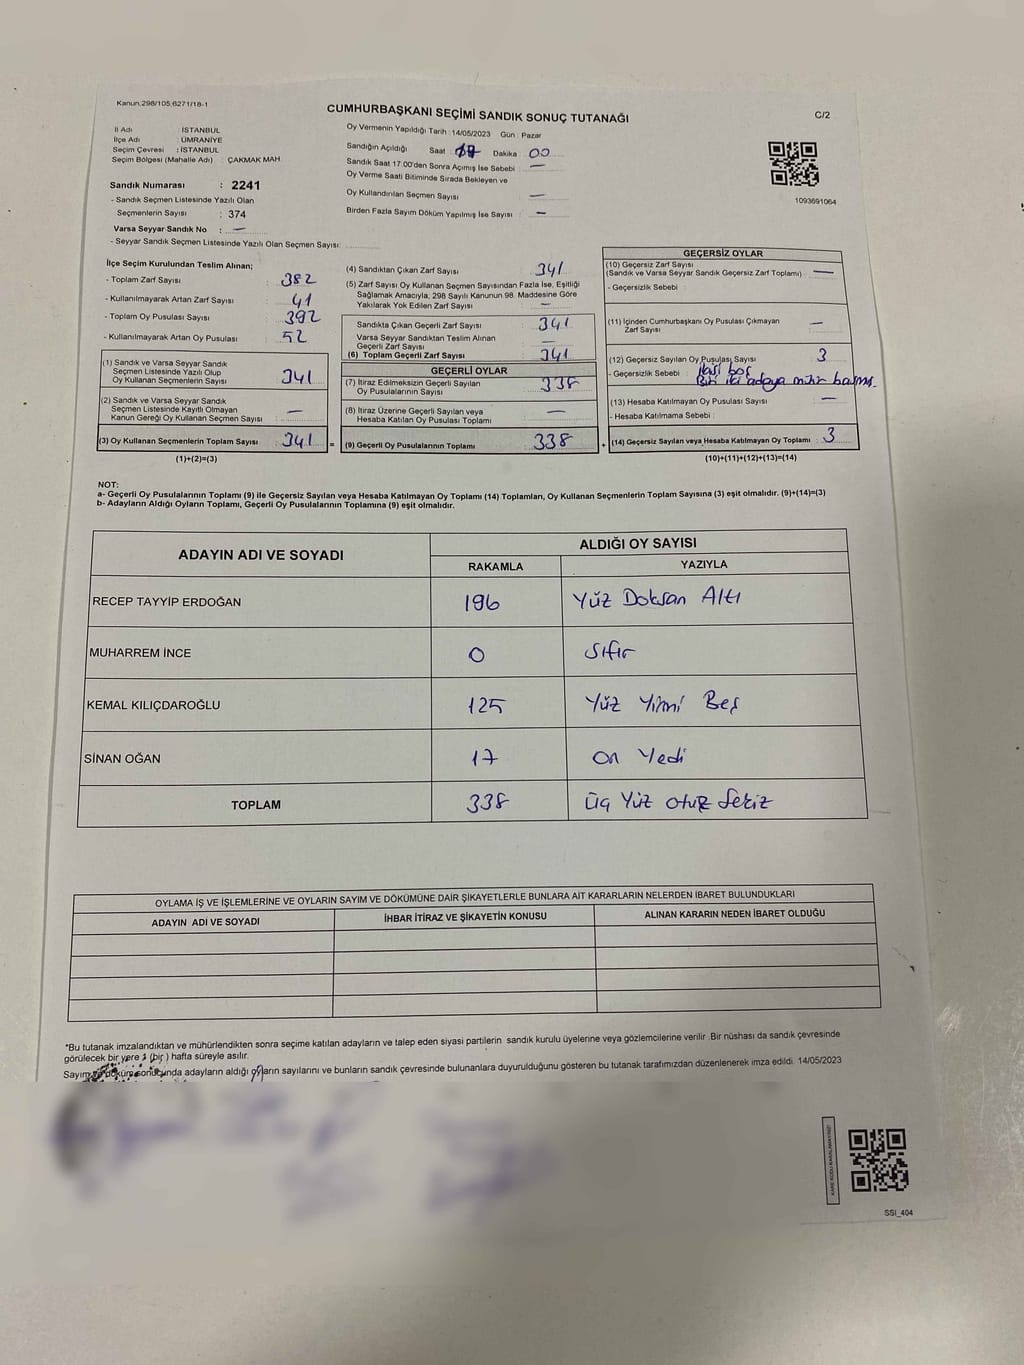 Kanun.298/105,6271/18-1
CUMHURBAŞKANI SEÇİMİ SANDIK SONUÇ TUTANAĞI
C/2
İl Adı : İSTANBUL
İlçe Adı : ÜMRANİYE
Seçim Çevresi : İSTANBUL
Seçim Bölgesi (Mahalle Adı) : ÇAKMAK MAH.
Sandık Numarası : 2241
- Sandık Seçmen Listesinde Yazılı Olan
Seçmenlerin Sayısı : 374
Varsa Seyyar Sandık No : —
- Seyyar Sandık Seçmen Listesinde Yazılı Olan Seçmen Sayısı:
Oy Vermenin Yapıldığı Tarih : 14/05/2023 Gün : Pazar
Sandığın Açıldığı Saat Dakika : 00
Sandık Saat 17:00'den Sonra Açımış İse Sebebi : —
Oy Verme Saati Bitiminde Sırada Bekleyen ve
Oy Kullandırılan Seçmen Sayısı : —
Birden Fazla Sayım Döküm Yapılmış İse Sayısı : —
1093691064
İlçe Seçim Kurulundan Teslim Alınan;
- Toplam Zarf Sayısı : 382
- Kullanılmayarak Artan Zarf Sayısı : 41
- Toplam Oy Pusulası Sayısı : 392
- Kullanılmayarak Artan Oy Pusulası : 52
(1) Sandık ve Varsa Seyyar Sandık
Seçmen Listesinde Yazılı Olup
Oy Kullanan Seçmenlerin Sayısı : 341
(2) Sandık ve Varsa Seyyar Sandık
Seçmen Listesinde Kayıtlı Olmayan
Kanun Gereği Oy Kullanan Seçmen Sayısı : —
(3) Oy Kullanan Seçmenlerin Toplam Sayısı : 341
(1)+(2)=(3)
(4) Sandıktan Çıkan Zarf Sayısı : 341
(5) Zarf Sayısı Oy Kullanan Seçmen Sayısından Fazla İse, Eşitliği
Sağlamak Amacıyla, 298 Sayılı Kanunun 98. Maddesine Göre
Yakılarak Yok Edilen Zarf Sayısı : —
Sandıkta Çıkan Geçerli Zarf Sayısı : 341
Varsa Seyyar Sandıktan Teslim Alınan
Geçerli Zarf Sayısı : —
(6) Toplam Geçerli Zarf Sayısı : 341
GEÇERLİ OYLAR
(7) İtiraz Edilmeksizin Geçerli Sayılan
Oy Pusulalarının Sayısı : 338
(8) İtiraz Üzerine Geçerli Sayılan veya
Hesaba Katılan Oy Pusulası Toplamı : —
= (9) Geçerli Oy Pusulalarının Toplamı : 338
GEÇERSİZ OYLAR
(10) Geçersiz Zarf Sayısı
(Sandık ve Varsa Seyyar Sandık Geçersiz Zarf Toplamı) : —
- Geçersizlik Sebebi :
(11) İçinden Cumhurbaşkanı Oy Pusulası Çıkmayan
Zarf Sayısı : —
(12) Geçersiz Sayılan Oy Pusulası Sayısı : 3
- Geçersizlik Sebebi : ikisi boş
Biri iki adaya mühür basmış.
(13) Hesaba Katılmayan Oy Pusulası Sayısı : —
- Hesaba Katılmama Sebebi :
+ (14) Geçersiz Sayılan veya Hesaba Katılmayan Oy Toplamı : 3
(10)+(11)+(12)+(13)=(14)
NOT:
a- Geçerli Oy Pusulalarının Toplamı (9) ile Geçersiz Sayılan veya Hesaba Katılmayan Oy Toplamı (14) Toplamları, Oy Kullanan Seçmenlerin Toplam Sayısına (3) eşit olmalıdır. (9)+(14)=(3)
b- Adayların Aldığı Oyların Toplamı, Geçerli Oy Pusulalarının Toplamına (9) eşit olmalıdır.
ADAYIN ADI VE SOYADI ALDIĞI OY SAYISI
RAKAMLA YAZIYLA
RECEP TAYYİP ERDOĞAN 196 Yüz Doksan Altı
MUHARREM İNCE 0 Sıfır
KEMAL KILIÇDAROĞLU 125 Yüz Yirmi Beş
SİNAN OĞAN 17 On Yedi
TOPLAM 338 Üç Yüz Otuz Sekiz
OYLAMA İŞ VE İŞLEMLERİNE VE OYLARIN SAYIM VE DÖKÜMÜNE DAİR ŞİKAYETLERLE BUNLARA AİT KARARLARIN NELERDEN İBARET BULUNDUKLARI
ADAYIN ADI VE SOYADI İHBAR İTİRAZ VE ŞİKAYETİN KONUSU ALINAN KARARIN NEDEN İBARET OLDUĞU
*Bu tutanak imzalandıktan ve mühürlendikten sonra seçime katılan adayların ve talep eden siyasi partilerin sandık kurulu üyelerine veya gözlemcilerine verilir .Bir nüshası da sandık çevresinde
görülecek bir yere 1 (bir) hafta süreyle asılır.
Sayım ve döküm sonucunda adayların aldığı oyların sayılarını ve bunların sandık çevresinde bulunanlara duyurulduğunu gösteren bu tutanak tarafımızdan düzenlenerek imza edildi. 14/05/2023
KARE KODU KARALAMAYINIZ!
SSI_404